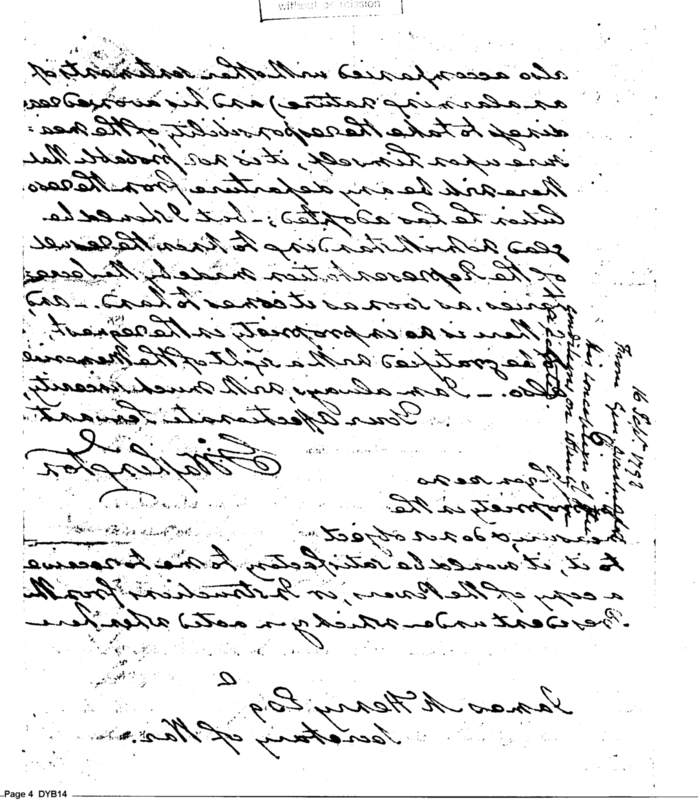 without permission
also accompanied with other sentiments of
an alarming nature) and his avowed rea-
diness to take the responsibility of the mea-
sure upon himself, it is not probable that
there will be any departure from the reso-
lution he has adopted;- but I should be
glad notwithstanding to know the result
of the Representation made by the Secre-
taries, as soon as it comes to hand.- and,
there is no impropriety in the request,
be gratified with a sight of the Memorial
also.- I am always, with much sincerity
Your Affectionate Servant
Go: Washington
If you see no
impropriety in the
measure, & do not object
to it, it would be satisfactory to me to receive
a copy of the Powers, or Instructions from the
President under which you acted when here
James McHenry Esq
Secretary of War.
16 Sept. 1798
From Gen.
his conception of the
Page 4 DYB14